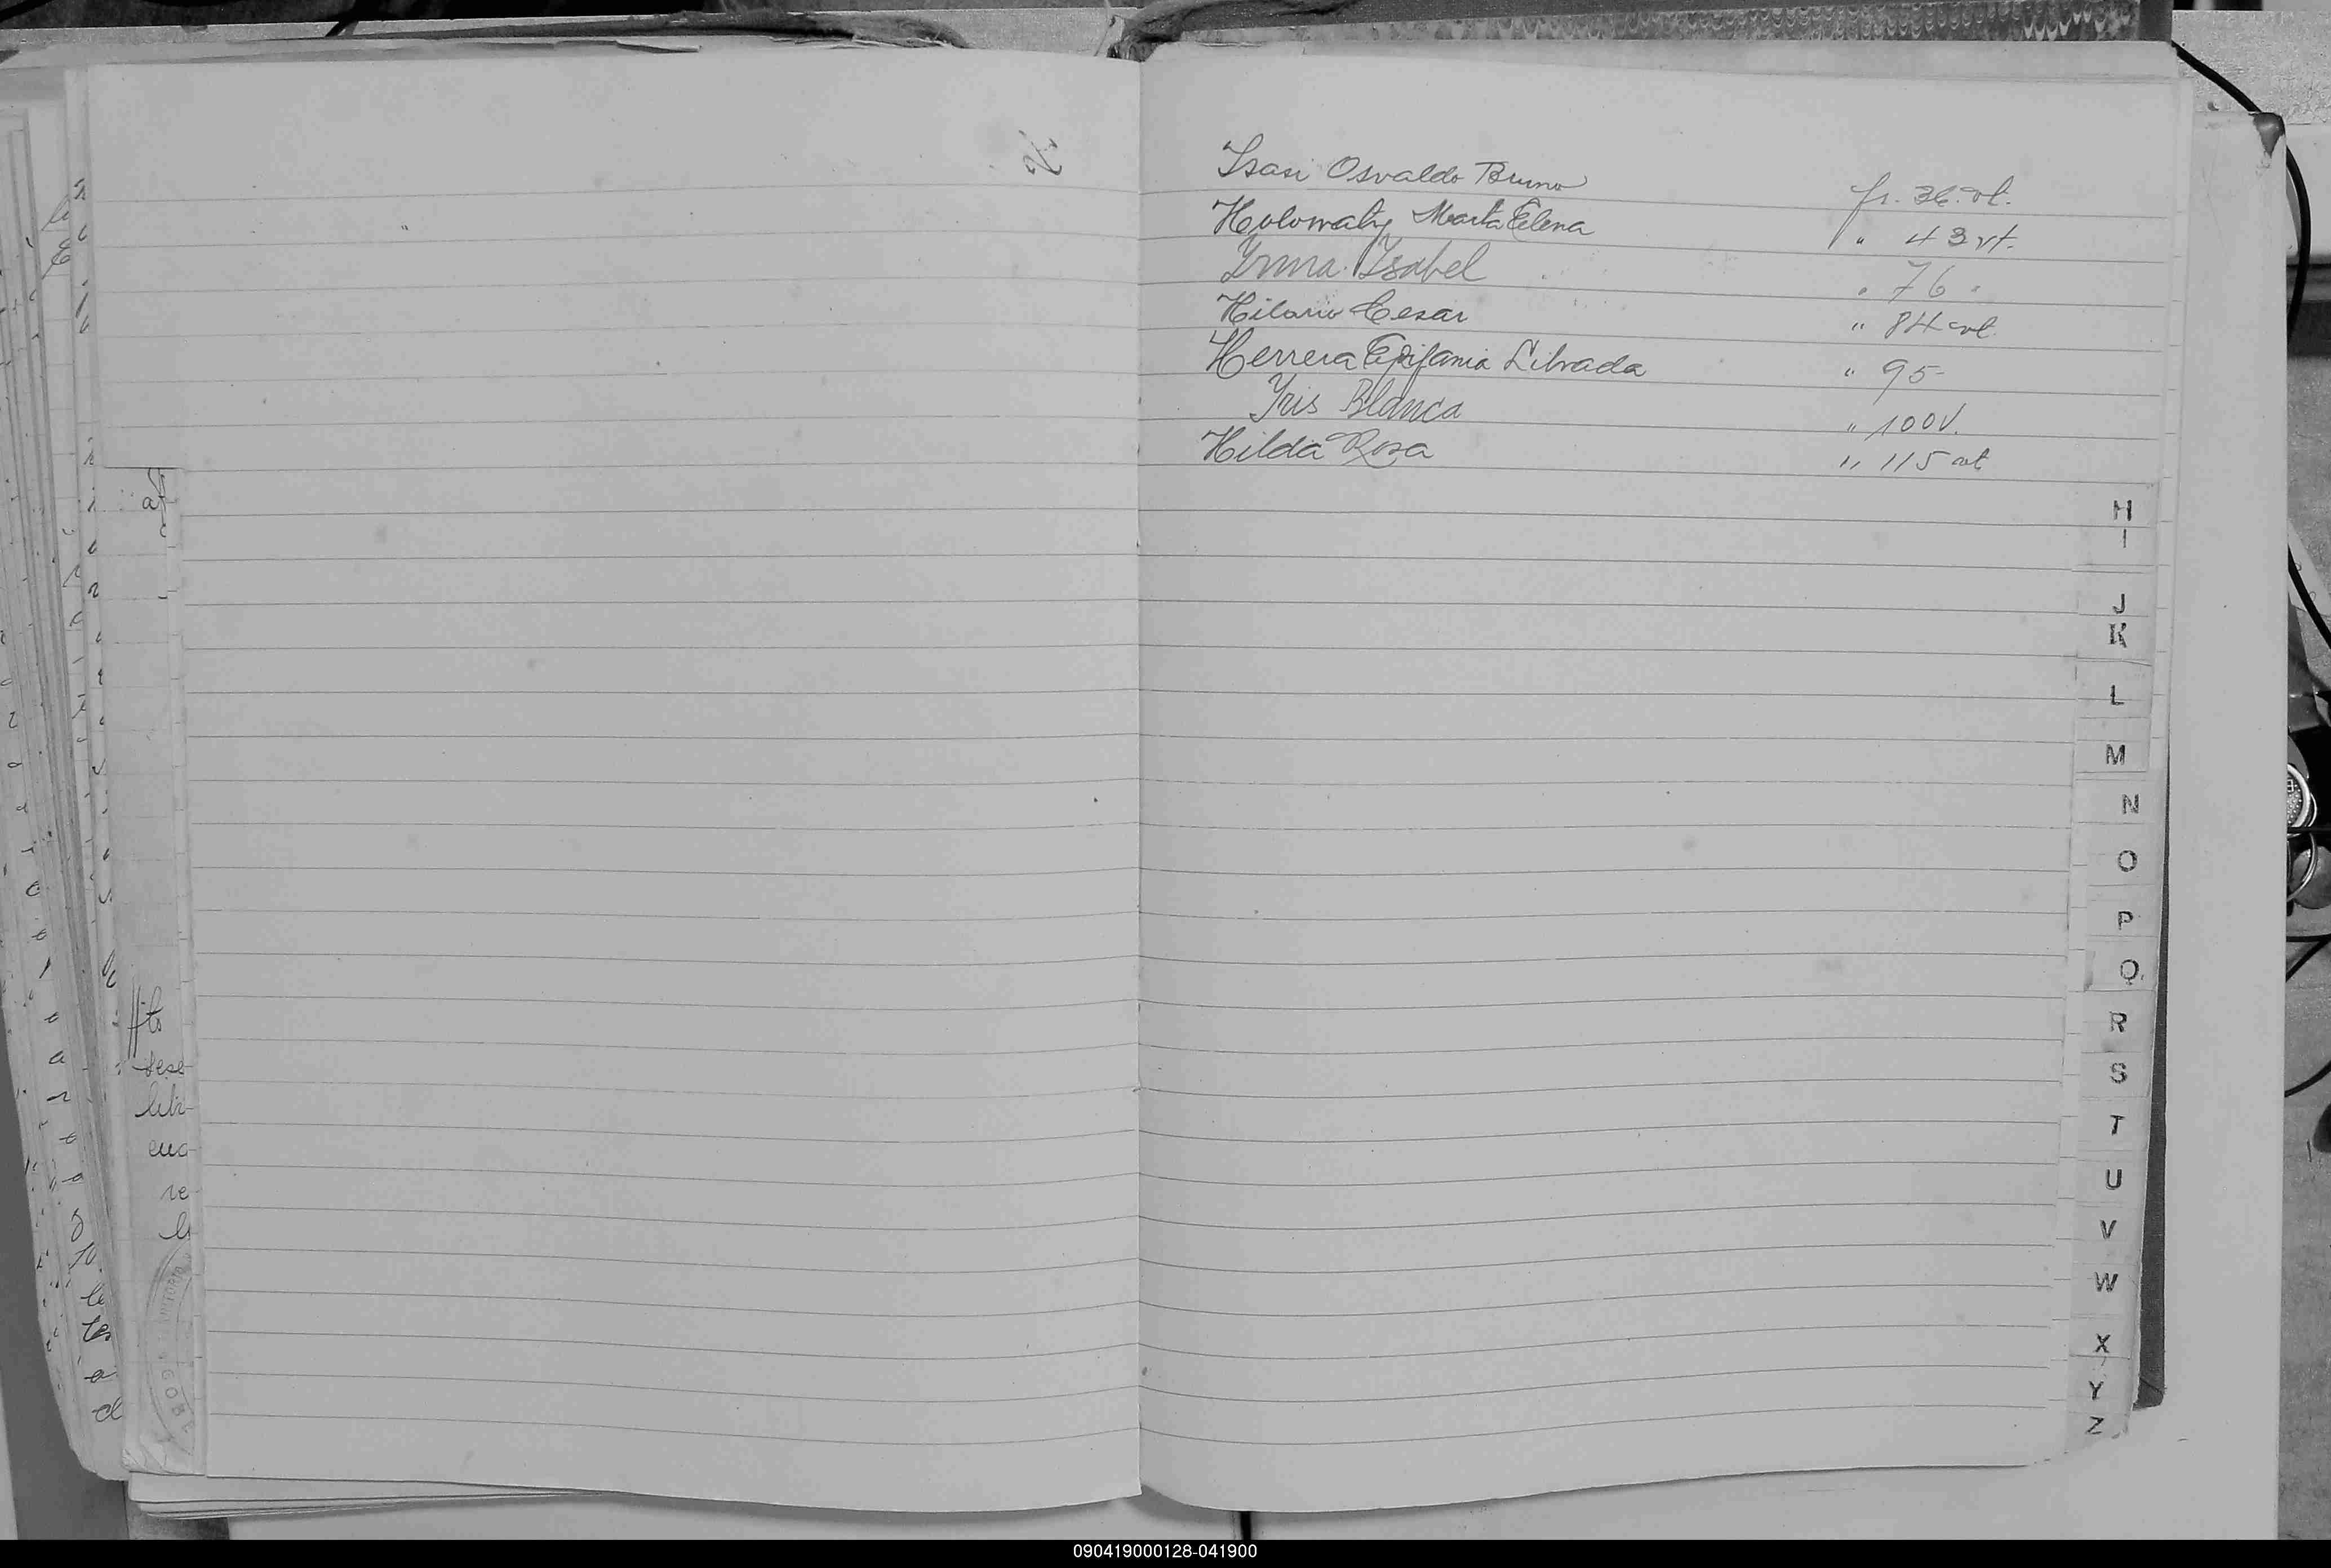 Isasi Osvaldo Bruno fs. 36 vt.
Holowaty Marta Elena " 43 vt.
Irma Isabel " 76 "
Hilario Cesar " 84 vt.
Herrera Epifania Librada " 95
Iris Blanca " 100 V.
Hilda Rosa " 115 vt
H
I
J
K
L
M
N
O
P
Q
R
S
T
U
V
W
X
Y
Z
090419000128-041900